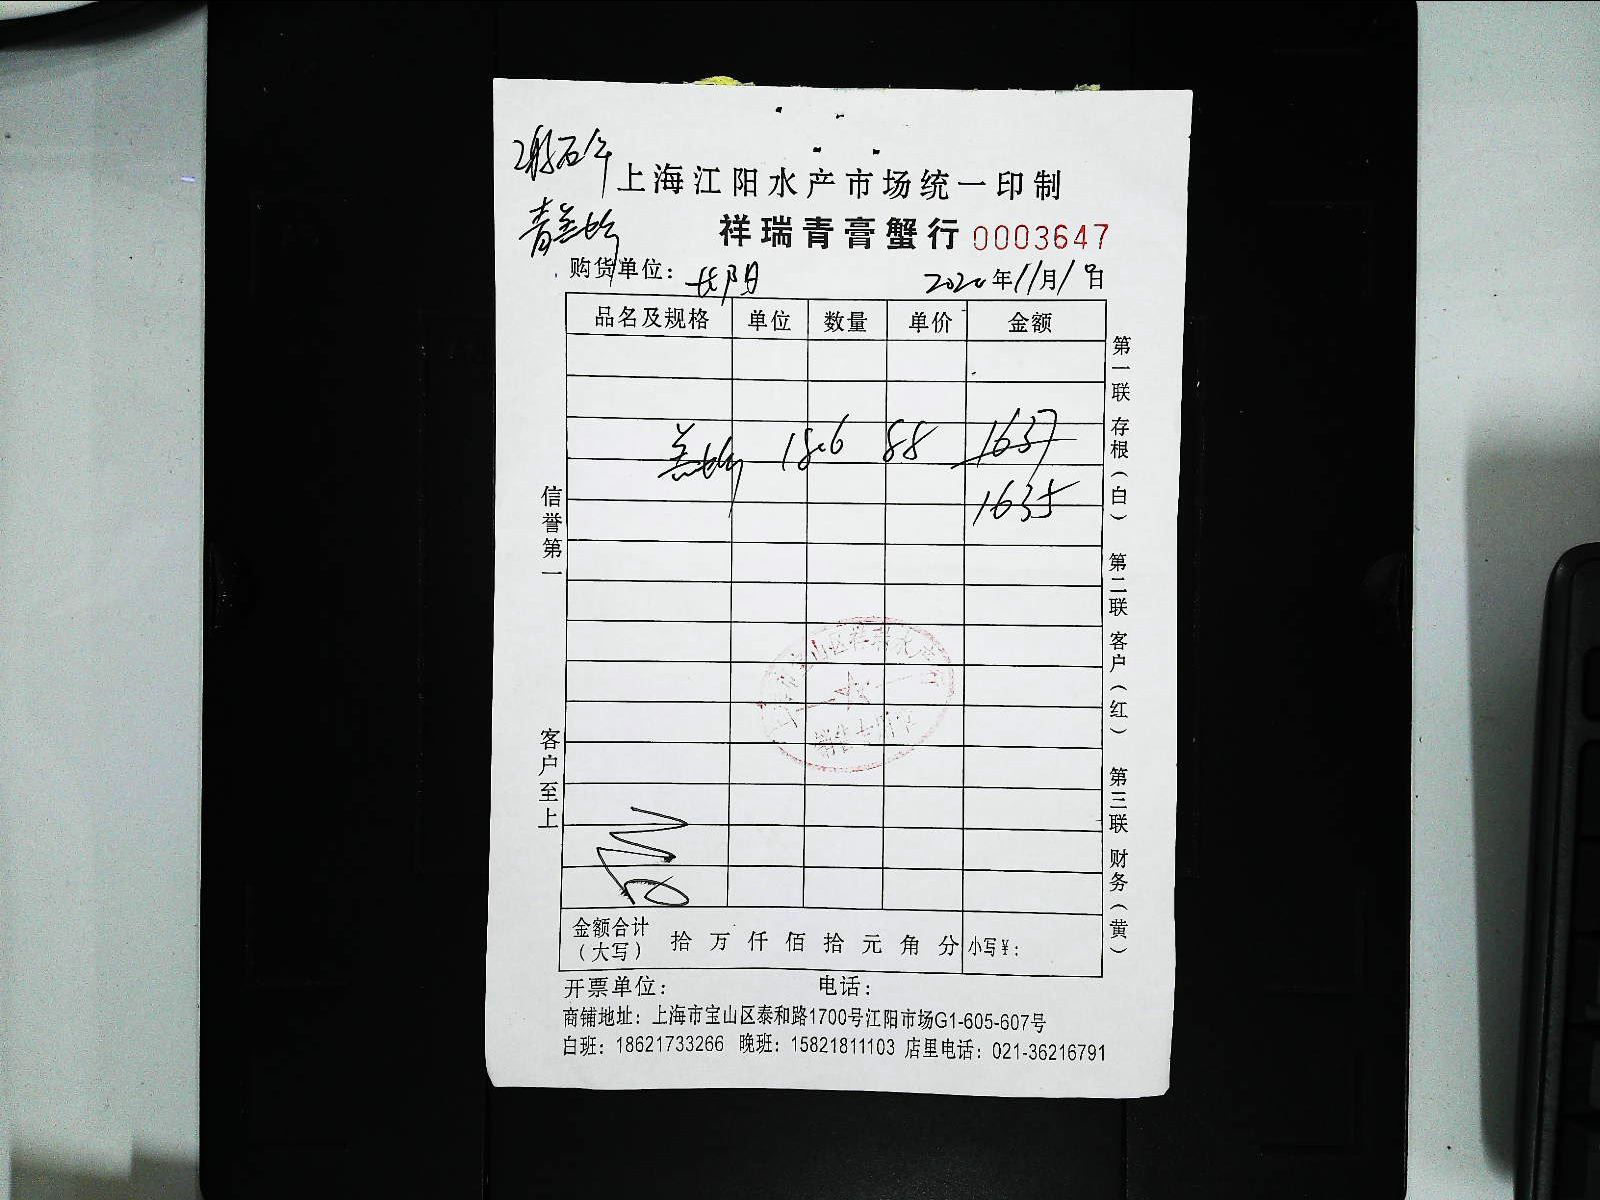 上海江阳水产市场统一印制
祥瑞青膏蟹行 0003647
购货单位：长阳 2020年11月19日
品名及规格 单位 数量 单价 金额
18.6 88 1637
1635
信誉第一
客户至上
第一联 存根（白） 第二联 客户（红） 第三联 财务（黄）
金额合计（大写） 拾 万 仟 佰 拾 元 角 分 小写￥：
开票单位： 电话：
商铺地址：上海市宝山区泰和路1700号江阳市场G1-605-607号
白班：18621733266 晚班：15821811103 店里电话：021-36216791